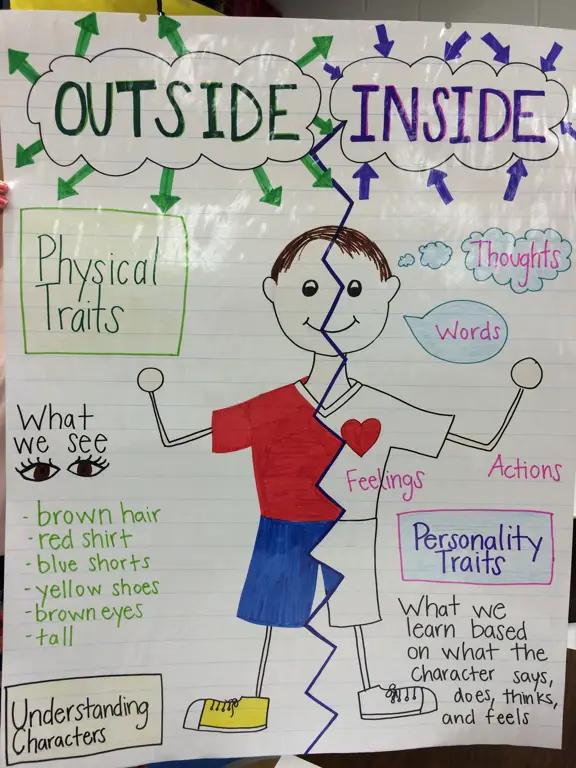 OUTSIDE
INSIDE
Physical
Traits
What
we see
- brown hair
- red shirt
- blue shorts
- yellow shoes
- brown eyes
- tall
Understanding
Characters
Thoughts
Words
Feelings
Actions
Personality
Traits
What we
learn based
on what the
character says,
does, thinks,
and feels